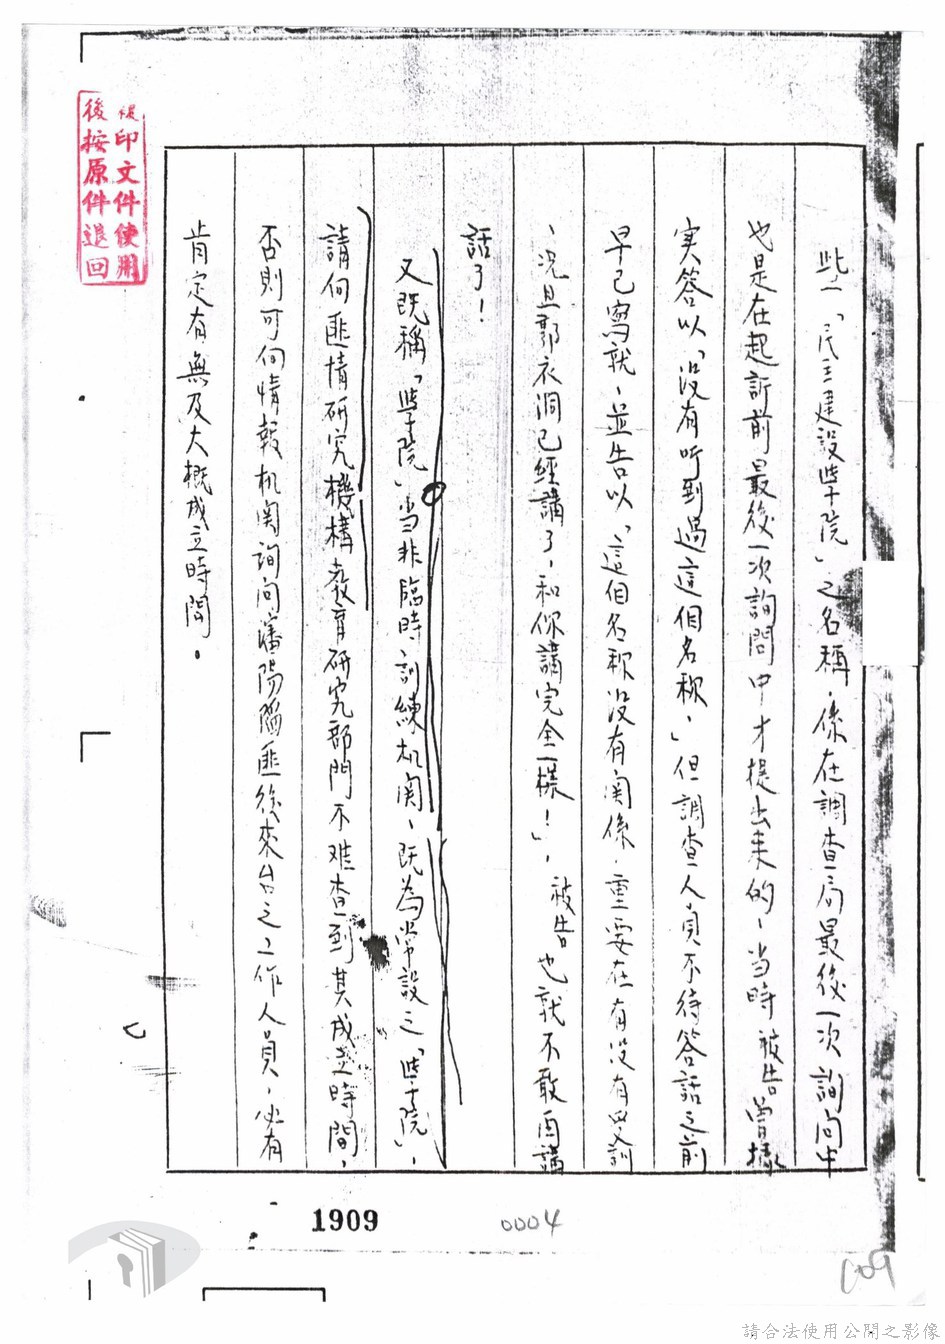 些「民主建設學院」之名稱，係在調查局最後一次詢问中
也是在起訴前最後一次詢問中才提出来的，当時被告曾據
实答以「没有听到過這個名称，」但調查人員不待答話之前
早已寫就，並告以「這個名称没有関係，重要在有没有受訓
，况且郭衣洞已經講了，和你講完全一樣！」，被告也就不敢再講
話了！
又既稱「學院」当非臨時訓練机関，既為常設之「學院」，
請向匪情研究機構教育研究部門不难查到其成立時間，
否則可向情報机関詢问瀋陽陷匪後來台之工作人員，必有
肯定有無及大概成立時間。
印文件使用
後按原件退回
1909
0004
009
請合法使用公開之影像